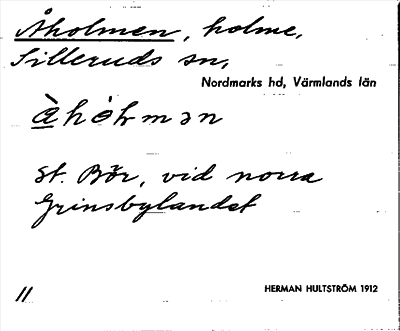 Åholmen, holme,
Silleruds sn,
Nordmarks hd, Värmlands län
St. Bör, vid norra
Grinsbylandet
11
HERMAN HULTSTRÖM 1912